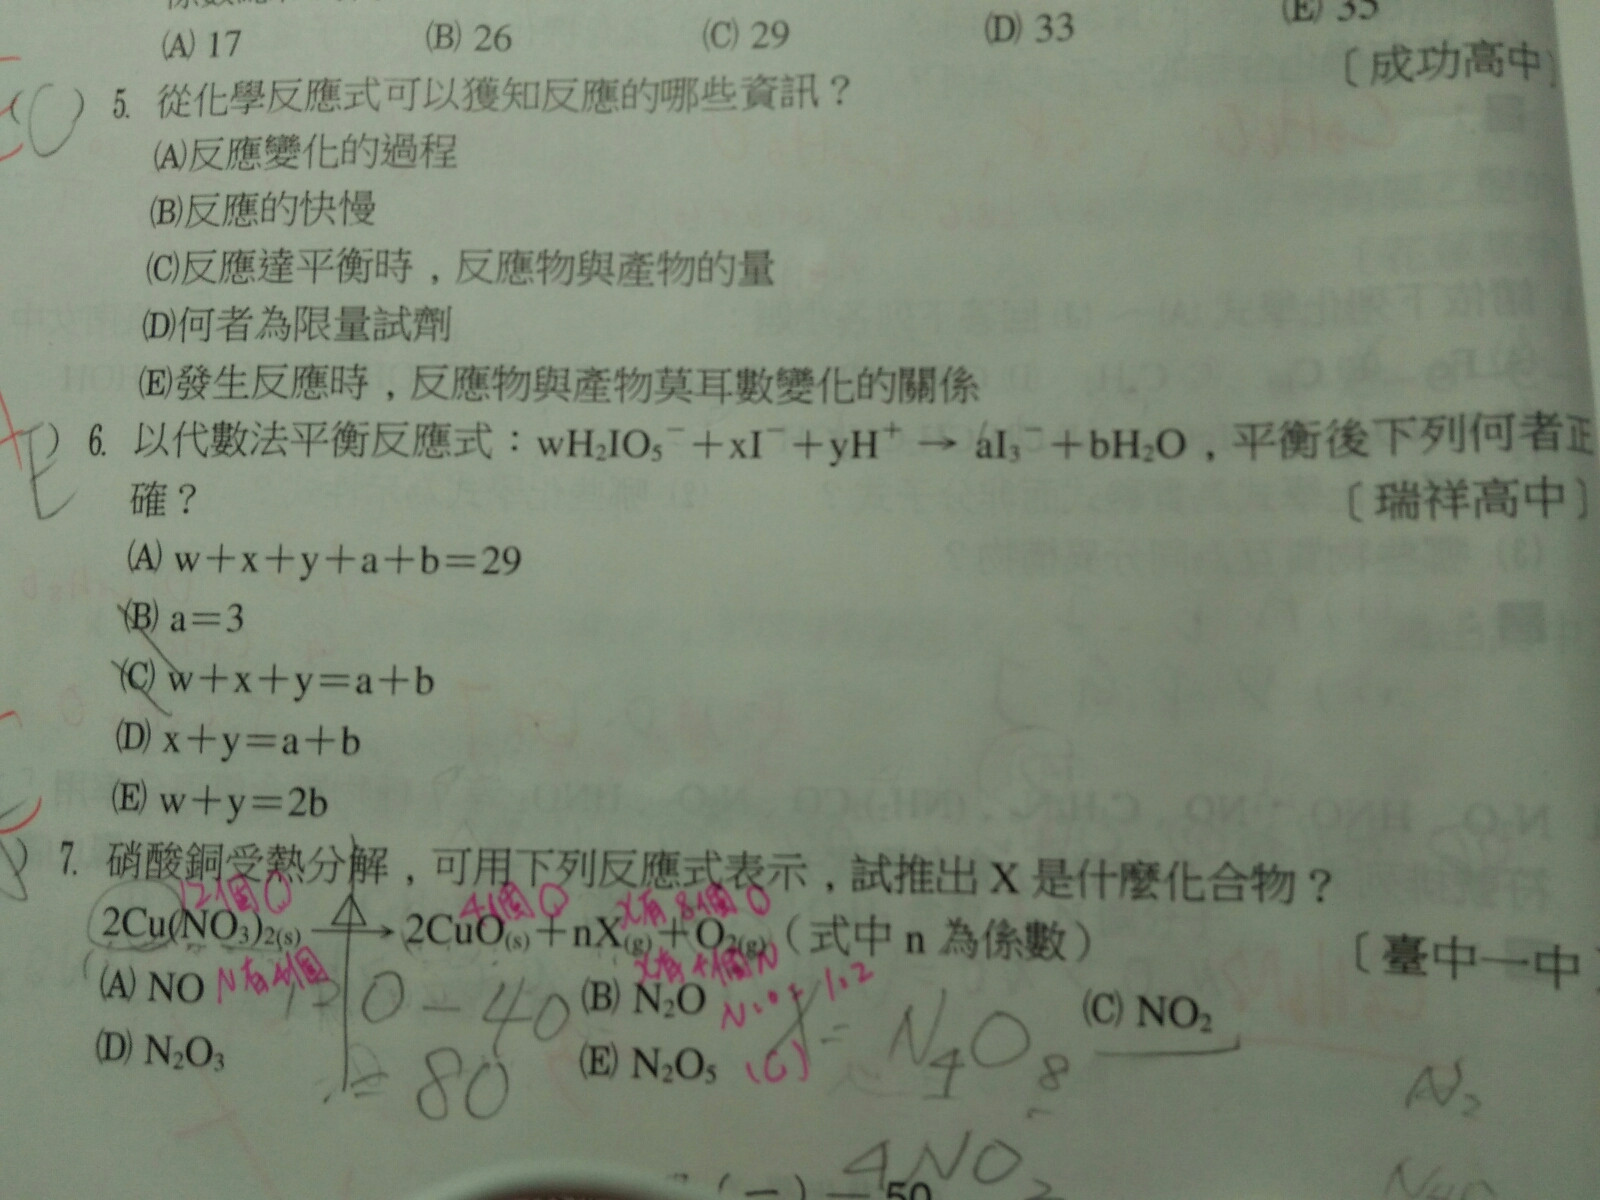 (A) 17 (B) 26 (C) 29 (D) 33 (E) 35
〔成功高中〕
5. 從化學反應式可以獲知反應的哪些資訊？
(A)反應變化的過程
(B)反應的快慢
(C)反應達平衡時，反應物與產物的量
(D)何者為限量試劑
(E)發生反應時，反應物與產物莫耳數變化的關係
E ) 6. 以代數法平衡反應式：wH₂IO₅⁻＋xI⁻＋yH⁺ → aI₃⁻＋bH₂O，平衡後下列何者正
確？ 〔瑞祥高中〕
(A) w＋x＋y＋a＋b＝29
(B) a＝3
(C) w＋x＋y＝a＋b
(D) x＋y＝a＋b
(E) w＋y＝2b
) 7. 硝酸銅受熱分解，可用下列反應式表示，試推出 X 是什麼化合物？
12個O 4個O X有8個O
2Cu(NO₃)₂₍s₎ → 2CuO₍s₎＋nX₍g₎＋O₂₍g₎（式中 n 為係數） 〔臺中一中〕
N有4個 X有4個N
(A) NO (B) N₂O (C) NO₂
120 - 40 N:O = 1:2 X = N₄O₈
(D) N₂O₃ (E) N₂O₅ (C)
= 80 N₂
4NO₂
(一) 50